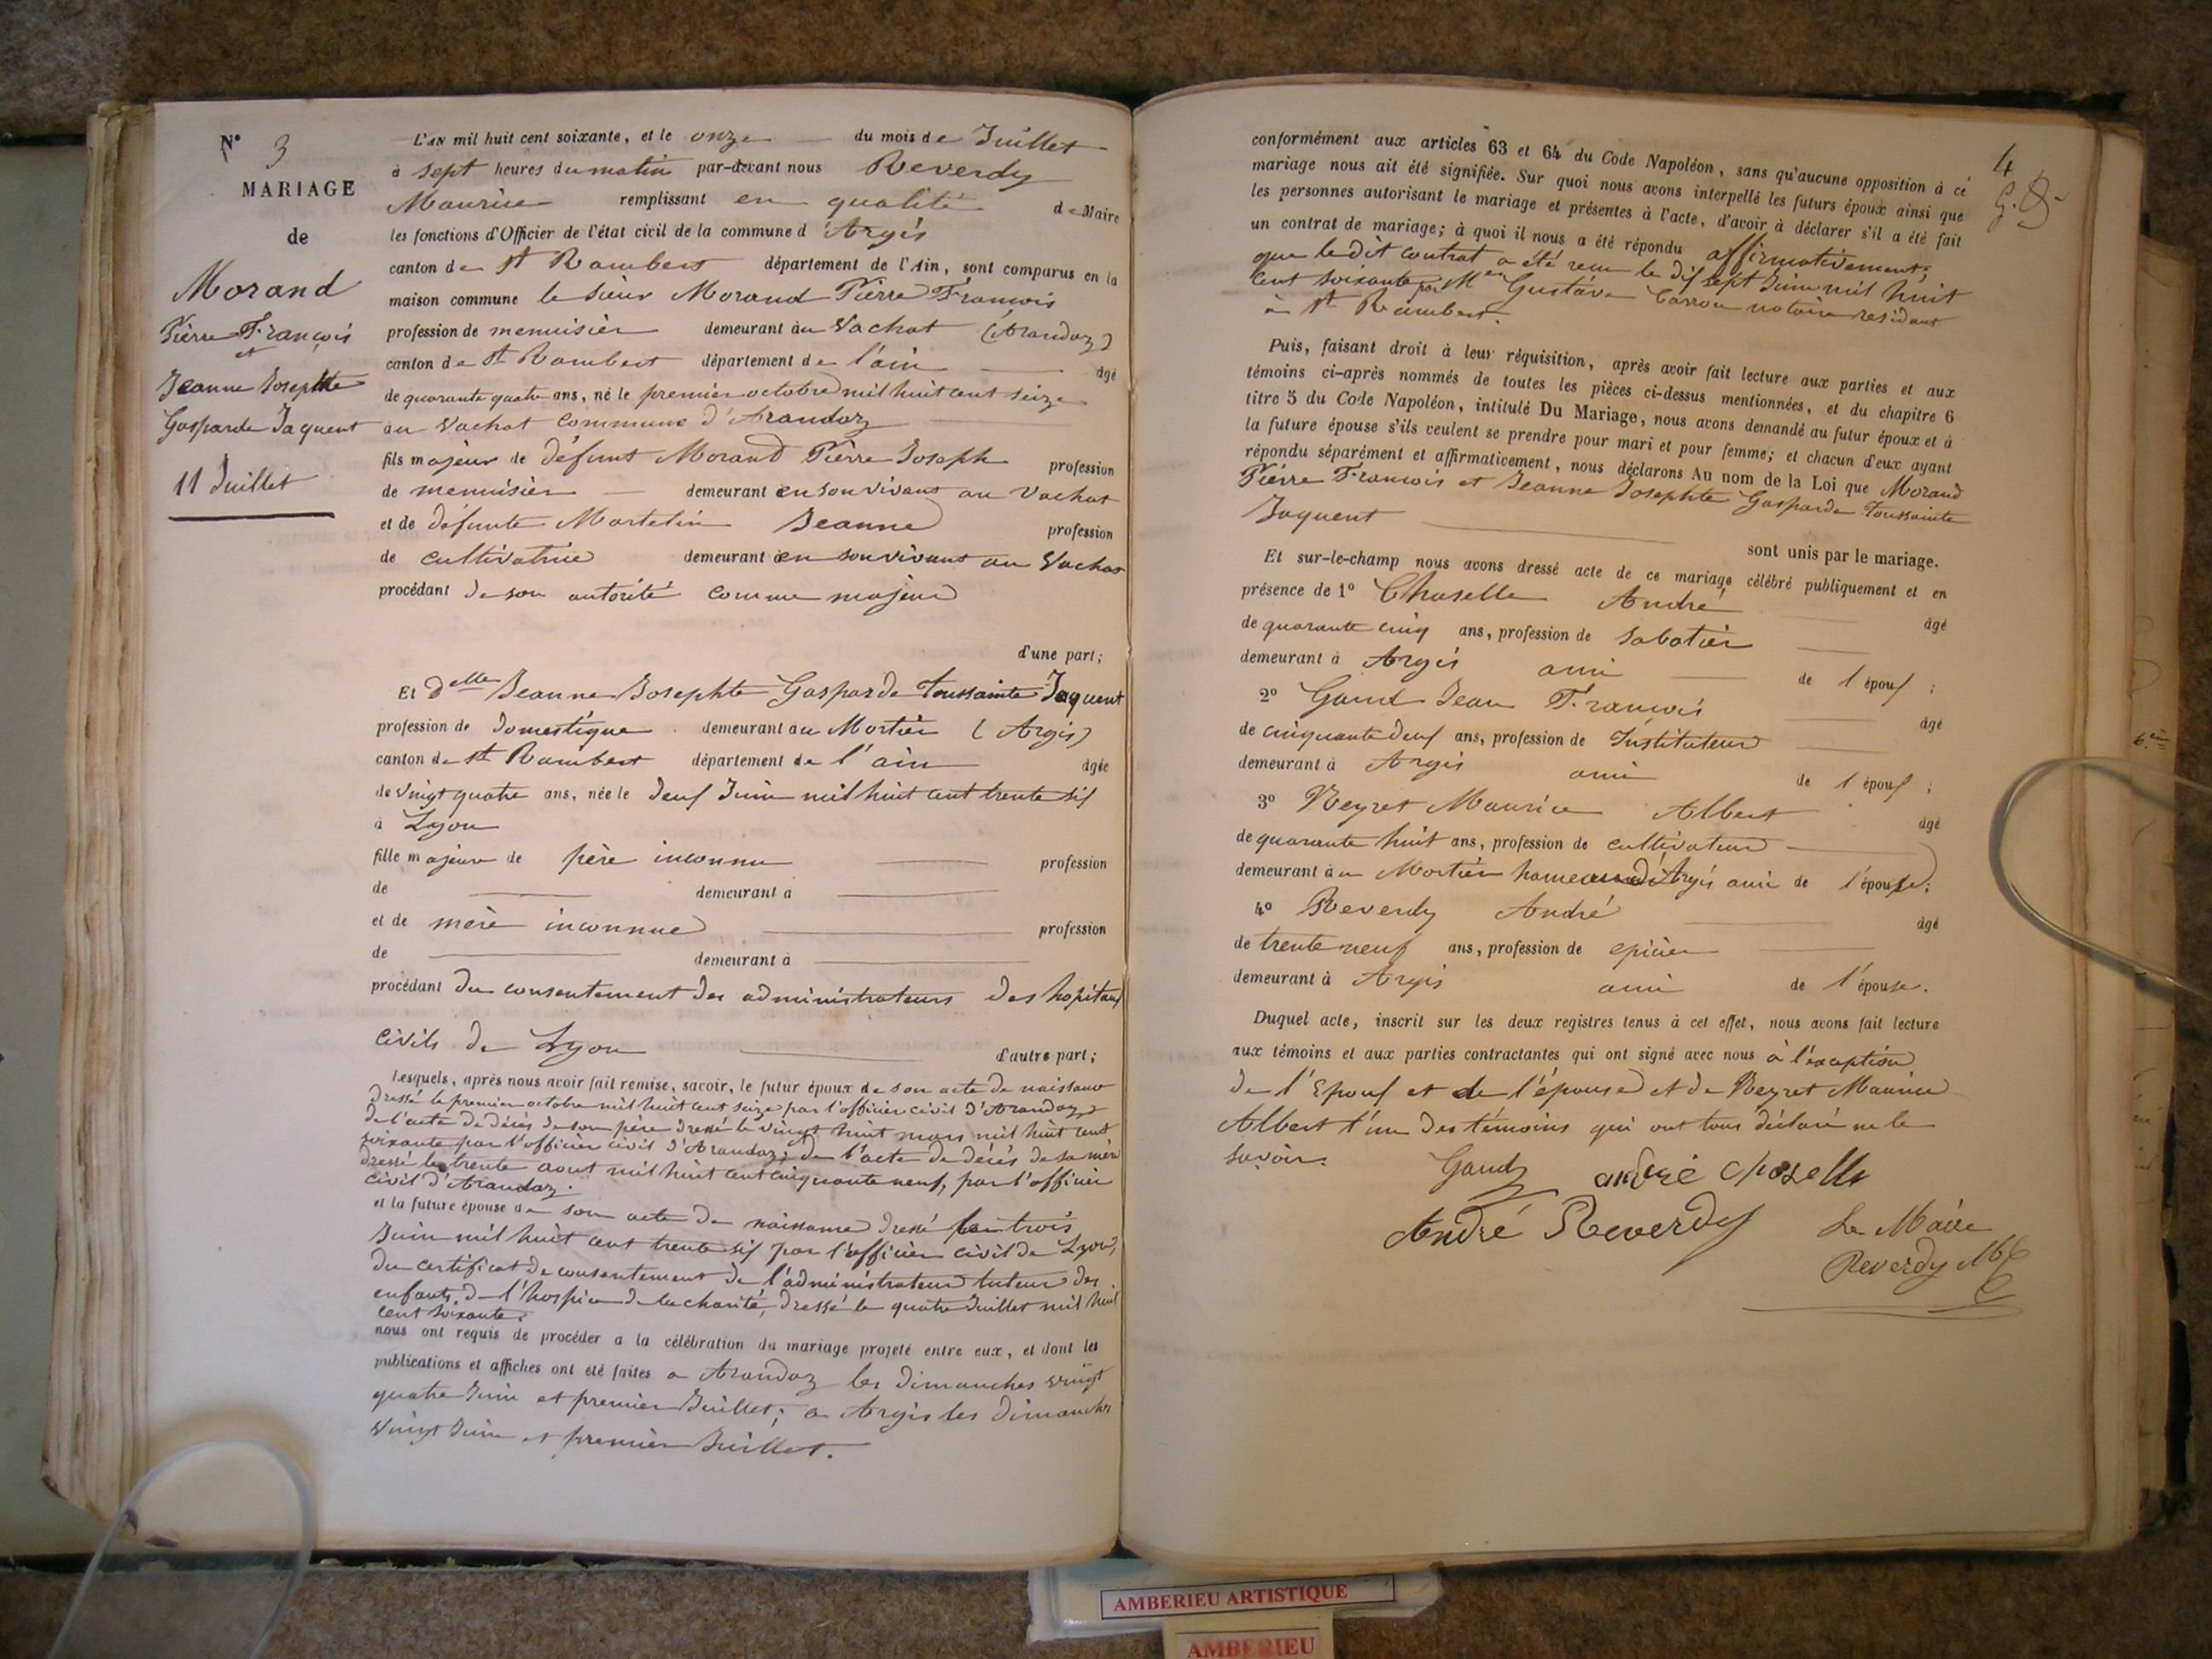 N° 3
MARIAGE
de
Morand
Pierre François
et
Jeanne Josephte
Gasparde Jaquent
11 Juillet
L'AN mil huit cent soixante, et le onze du mois de Juillet
à sept heures du matin par-devant nous Reverdy
Maurice remplissant en qualité de Maire
les fonctions d'Officier de l'état civil de la commune d'Argis
canton de St Rambert département de l'Ain, sont comparus en la
maison commune le sieur Morand Pierre François
profession de menuisier demeurant au Vachat (Arandaz)
canton de St Rambert département de l'ain âgé
de quarante quatre ans, né le premier octobre mil huit cent seize
au Vachat commune d'Arandaz
fils majeur de défunt Morand Pierre Joseph profession
de menuisier demeurant en son vivant au Vachat
et de défunte Martelin Jeanne profession
de cultivatrice demeurant en son vivant au Vachat
procédant de son autorité comme majeur
d'une part;
Et delle Jeanne Josephte Gasparde Toussainte Jaquent
profession de domestique demeurant au Mortier (Argis)
canton de St Rambert département de l'ain âgée
de vingt quatre ans, née le deux Juin mil huit cent trente six
à Lyon
fille majeure de père inconnu profession
de demeurant à
et de mère inconnue profession
de demeurant à
procédant du consentement des administrateurs des hopitaux
civils de Lyon d'autre part;
Lesquels, après nous avoir fait remise, savoir, le futur époux de son acte de naissance
dressé le premier octobre mil huit cent seize par l'officier civil d'Arandaz,
de l'acte de décès de son père dressé le vingt huit mars mil huit cent
soixante par l'officier civil d'Arandaz; de l'acte de décès de sa mère
dressé le trente aout mil huit cent cinquante neuf, par l'officier
civil d'Arandaz.
et la future épouse de son acte de naissance dressé le trois
Juin mil huit cent trente six par l'officier civil de Lyon,
du certificat de consentement de l'administrateur tuteur des
enfants de l'hospice de la charité, dressé le quatre Juillet mil huit
cent soixante.
nous ont requis de procéder a la célébration du mariage projeté entre eux, et dont les
publications et affiches ont été faites a Arandaz les dimanches vingt
quatre Juin et premier Juillet; a Argis les dimanches
vingt Juin et premier Juillet.
4
conformément aux articles 63 et 64 du Code Napoléon, sans qu'aucune opposition à ce
mariage nous ait été signifiée. Sur quoi nous avons interpellé les futurs époux ainsi que
les personnes autorisant le mariage et présentes à l'acte, d'avoir à déclarer s'il a été fait
un contrat de mariage; à quoi il nous a été répondu affirmativement,
que le dit contrat a été recu le dix sept Juin mil huit
cent soixante par Me Gustave Carron notaire residant
à St Rambert.
Puis, faisant droit à leur réquisition, après avoir fait lecture aux parties et aux
témoins ci-après nommés de toutes les pièces ci-dessus mentionnées, et du chapitre 6
titre 5 du Code Napoléon, intitulé Du Mariage, nous avons demandé au futur époux et à
la future épouse s'ils veulent se prendre pour mari et pour femme; et chacun d'eux ayant
répondu séparément et affirmativement, nous déclarons Au nom de la Loi que Morand
Pierre François et Jeanne Josephte Gasparde Toussainte
Jaquent
sont unis par le mariage.
Et sur-le-champ nous avons dressé acte de ce mariage célébré publiquement et en
présence de 1° Choselle André âgé
de quarante cinq ans, profession de sabotier
demeurant à Argis ami de l époux;
2° Gaud Jean François âgé
de cinquante deux ans, profession de Instituteur
demeurant à Argis ami de l époux;
3° Reyret Maurice Albert âgé
de quarante huit ans, profession de cultivateur
demeurant au Mortier hameau d'Argis ami de l'épouse;
4° Reverdy André âgé
de trente neuf ans, profession de epicier
demeurant à Argis ami de l'épouse.
Duquel acte, inscrit sur les deux registres tenus à cet effet, nous avons fait lecture
aux témoins et aux parties contractantes qui ont signé avec nous à l'exception
de l'Epoux et de l'épouse et de Reyret Maurice
Albert l'un des témoins qui ont tous déclaré ne le
savoir.
Gaud andré choselle
André Reverdy Le Maire
Reverdy
AMBERIEU ARTISTIQUE
AMBERIEU